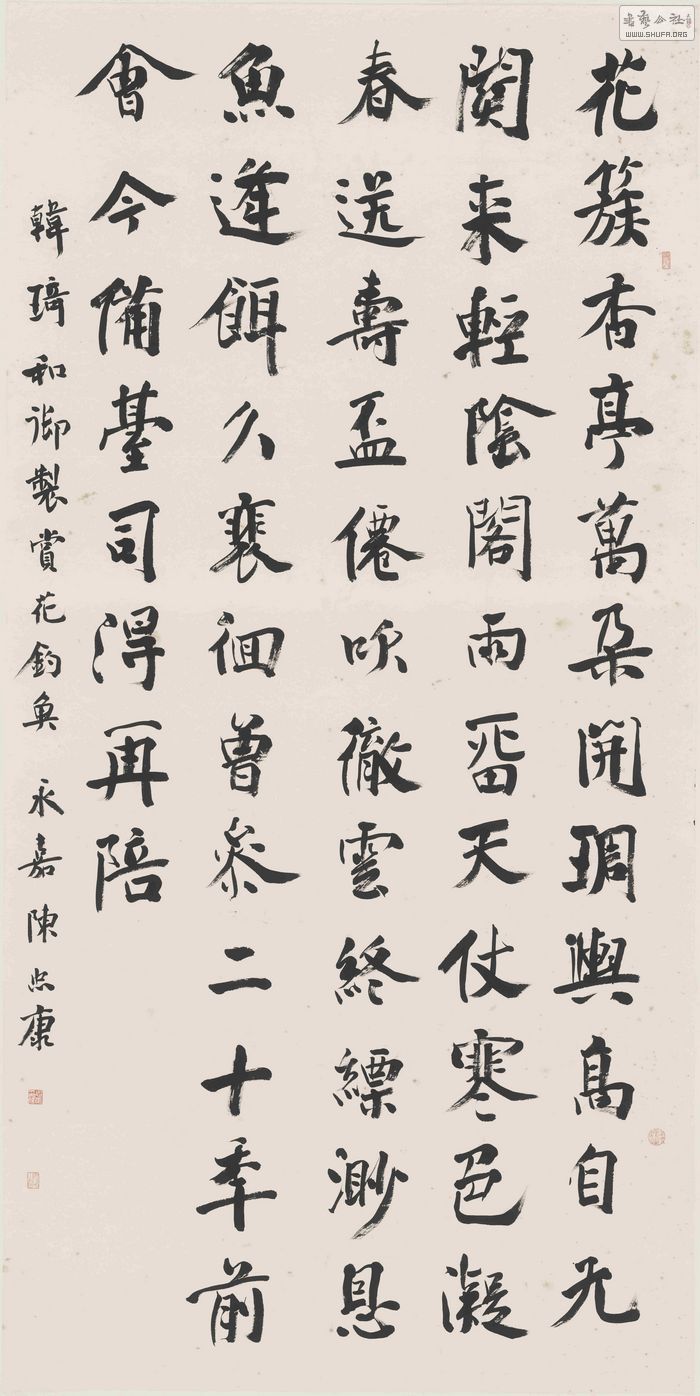 書藝公社
WWW.SHUFA.ORG
花簇香亭萬朵開琱輿高自九
関来輕陰閣雨畱天仗寒色凝
春送壽盃僊吹徹雲終縹渺恩
魚逢餌久裵徊曾叅二十季前
會今備臺司得再陪
韓琦和御製賞花釣魚 永嘉陳忠康